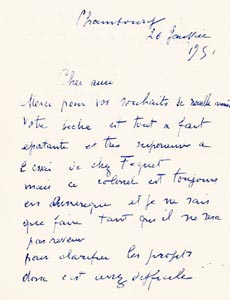 Chambourcy
26 Janvier
1951
Cher ami
Merci pour vos souhaits de nouvelle année
Votre est tout a fait
epatante et tres superieure a
l'essai de chez
mais ce colonel est toujours
en Amerique et je ne sais
que faire tant qu'il ne sera
pas revenu
pour clarifier les projets
donc c'est assez difficile